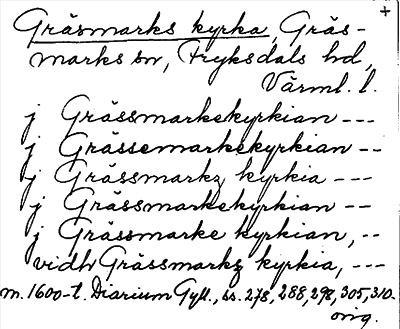 +
Gräsmarks kyrka, Gräs-
marks sn, Fryksdals hd,
Värml. l.
j Grässmarkekyrkian ---
j Grässemarkekyrkian --
j Grässmarkz kyrkia ---
j Grässmarkekyrkian ---
j Grässmarke kyrkian, --
vidh Grässmarkz kyrkia, ---
m. 1600-t. Diarium Gyll., ss. 278, 288, 298, 305, 310.
orig.